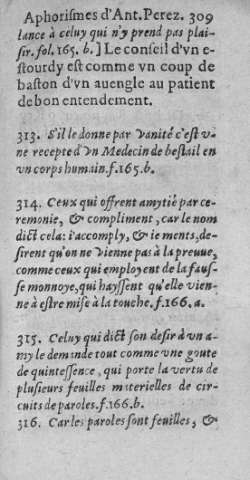 Aphorismes d'Ant. Perez. 309
lance à celuy qui n'y prend pas plai-
sir. fol. 165. b.] Le conseil d'vn e-
stourdy est comme vn coup de
baston d'vn aueugle au patient
de bon entendement.
313. S'il le donne par vanité c'est v-
ne recepte d'vn Medecin de bestail en
vn corps humain. f. 165. b.
314. Ceux qui offrent amytié par ce-
remonie, & compliment, car le nom
dict cela: i'accomply, & ie ments, de-
sirent qu'on ne vienne pas à la preuue,
comme ceux qui employent de la faus-
se monnoye, qui hayssent qu'elle vien-
ne à estre mise à la touche. f. 166. a.
315. Celuy qui dict son desir à vn a-
my le demande tout comme vne goute
de quintessence, qui porte la vertu de
plusieurs feuilles materielles de cir-
cuits de paroles. f. 166. b.
316. Car les paroles sont feuilles, &